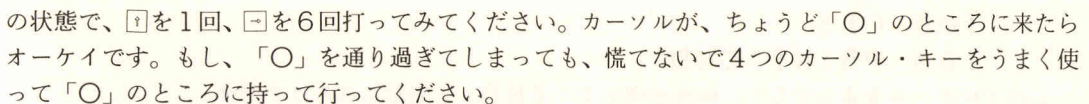 の状態で、↑を1回、→を6回打ってみてください。カーソルが、ちょうど「〇」のところに来たら
オーケイです。もし、「〇」を通り過ぎてしまっても、慌てないで4つのカーソル・キーをうまく使
って「〇」のところに持って行ってください。